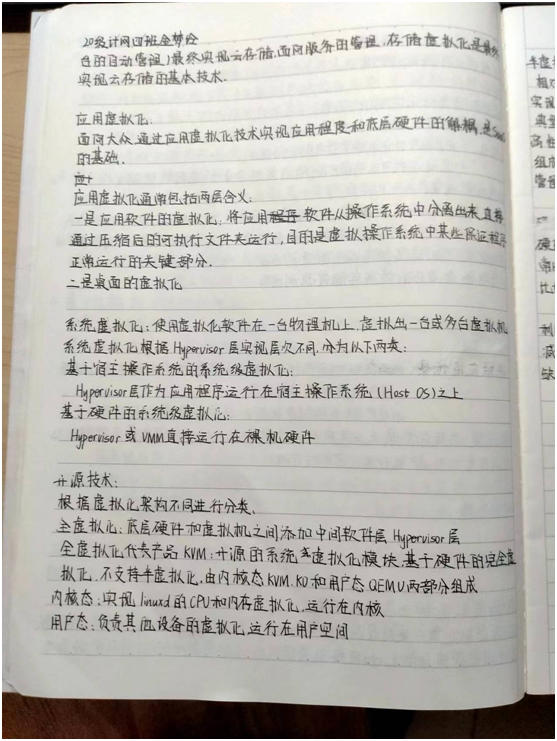 20级计网四班金梦玲
色的自动管理)最终实现云存储,面向服务的管理,存储虚拟化是最终
实现云存储的基本技术.
应用虚拟化:
面向大众,通过应用虚拟化技术实现应用程度和底层硬件的解耦,是SaaS
的基础.
应用虚拟化通常包括两层含义:
一是应用软件的虚拟化:将应用软件从操作系统中分离出来,直接
通过压缩后的可执行文件夹运行,目的是虚拟操作系统中某些保证程序
正常运行的关键部分.
二是桌面的虚拟化
系统虚拟化:使用虚拟化软件在一台物理机上,虚拟出一台或多台虚拟机
系统虚拟化根据Hypervisor层实现层次不同,分为以下两类:
基于宿主操作系统的系统级虚拟化:
Hypervisor层作为应用程序运行在宿主操作系统(Host OS)之上
基于硬件的系统级虚拟化:
Hypervisor或VMM直接运行在裸机硬件
开源技术:
根据虚拟化架构不同进行分类.
全虚拟化:底层硬件和虚拟机之间添加中间软件层Hypervisor层
全虚拟化代表产品KVM:开源的系统虚拟化模块,基于硬件的完全虚
拟化,不支持半虚拟化,由内核态KVM.KO和用户态QEMU两部分组成
内核态:实现linuxd的CPU和内存虚拟化,运行在内核
用户态:负责其他设备的虚拟化,运行在用户空间